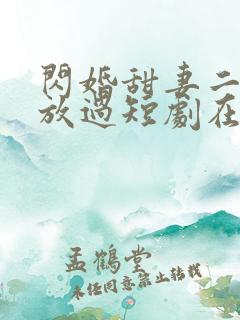 閃婚甜妻二
放過短劇在
孟鶴堂
未经同意禁止转载